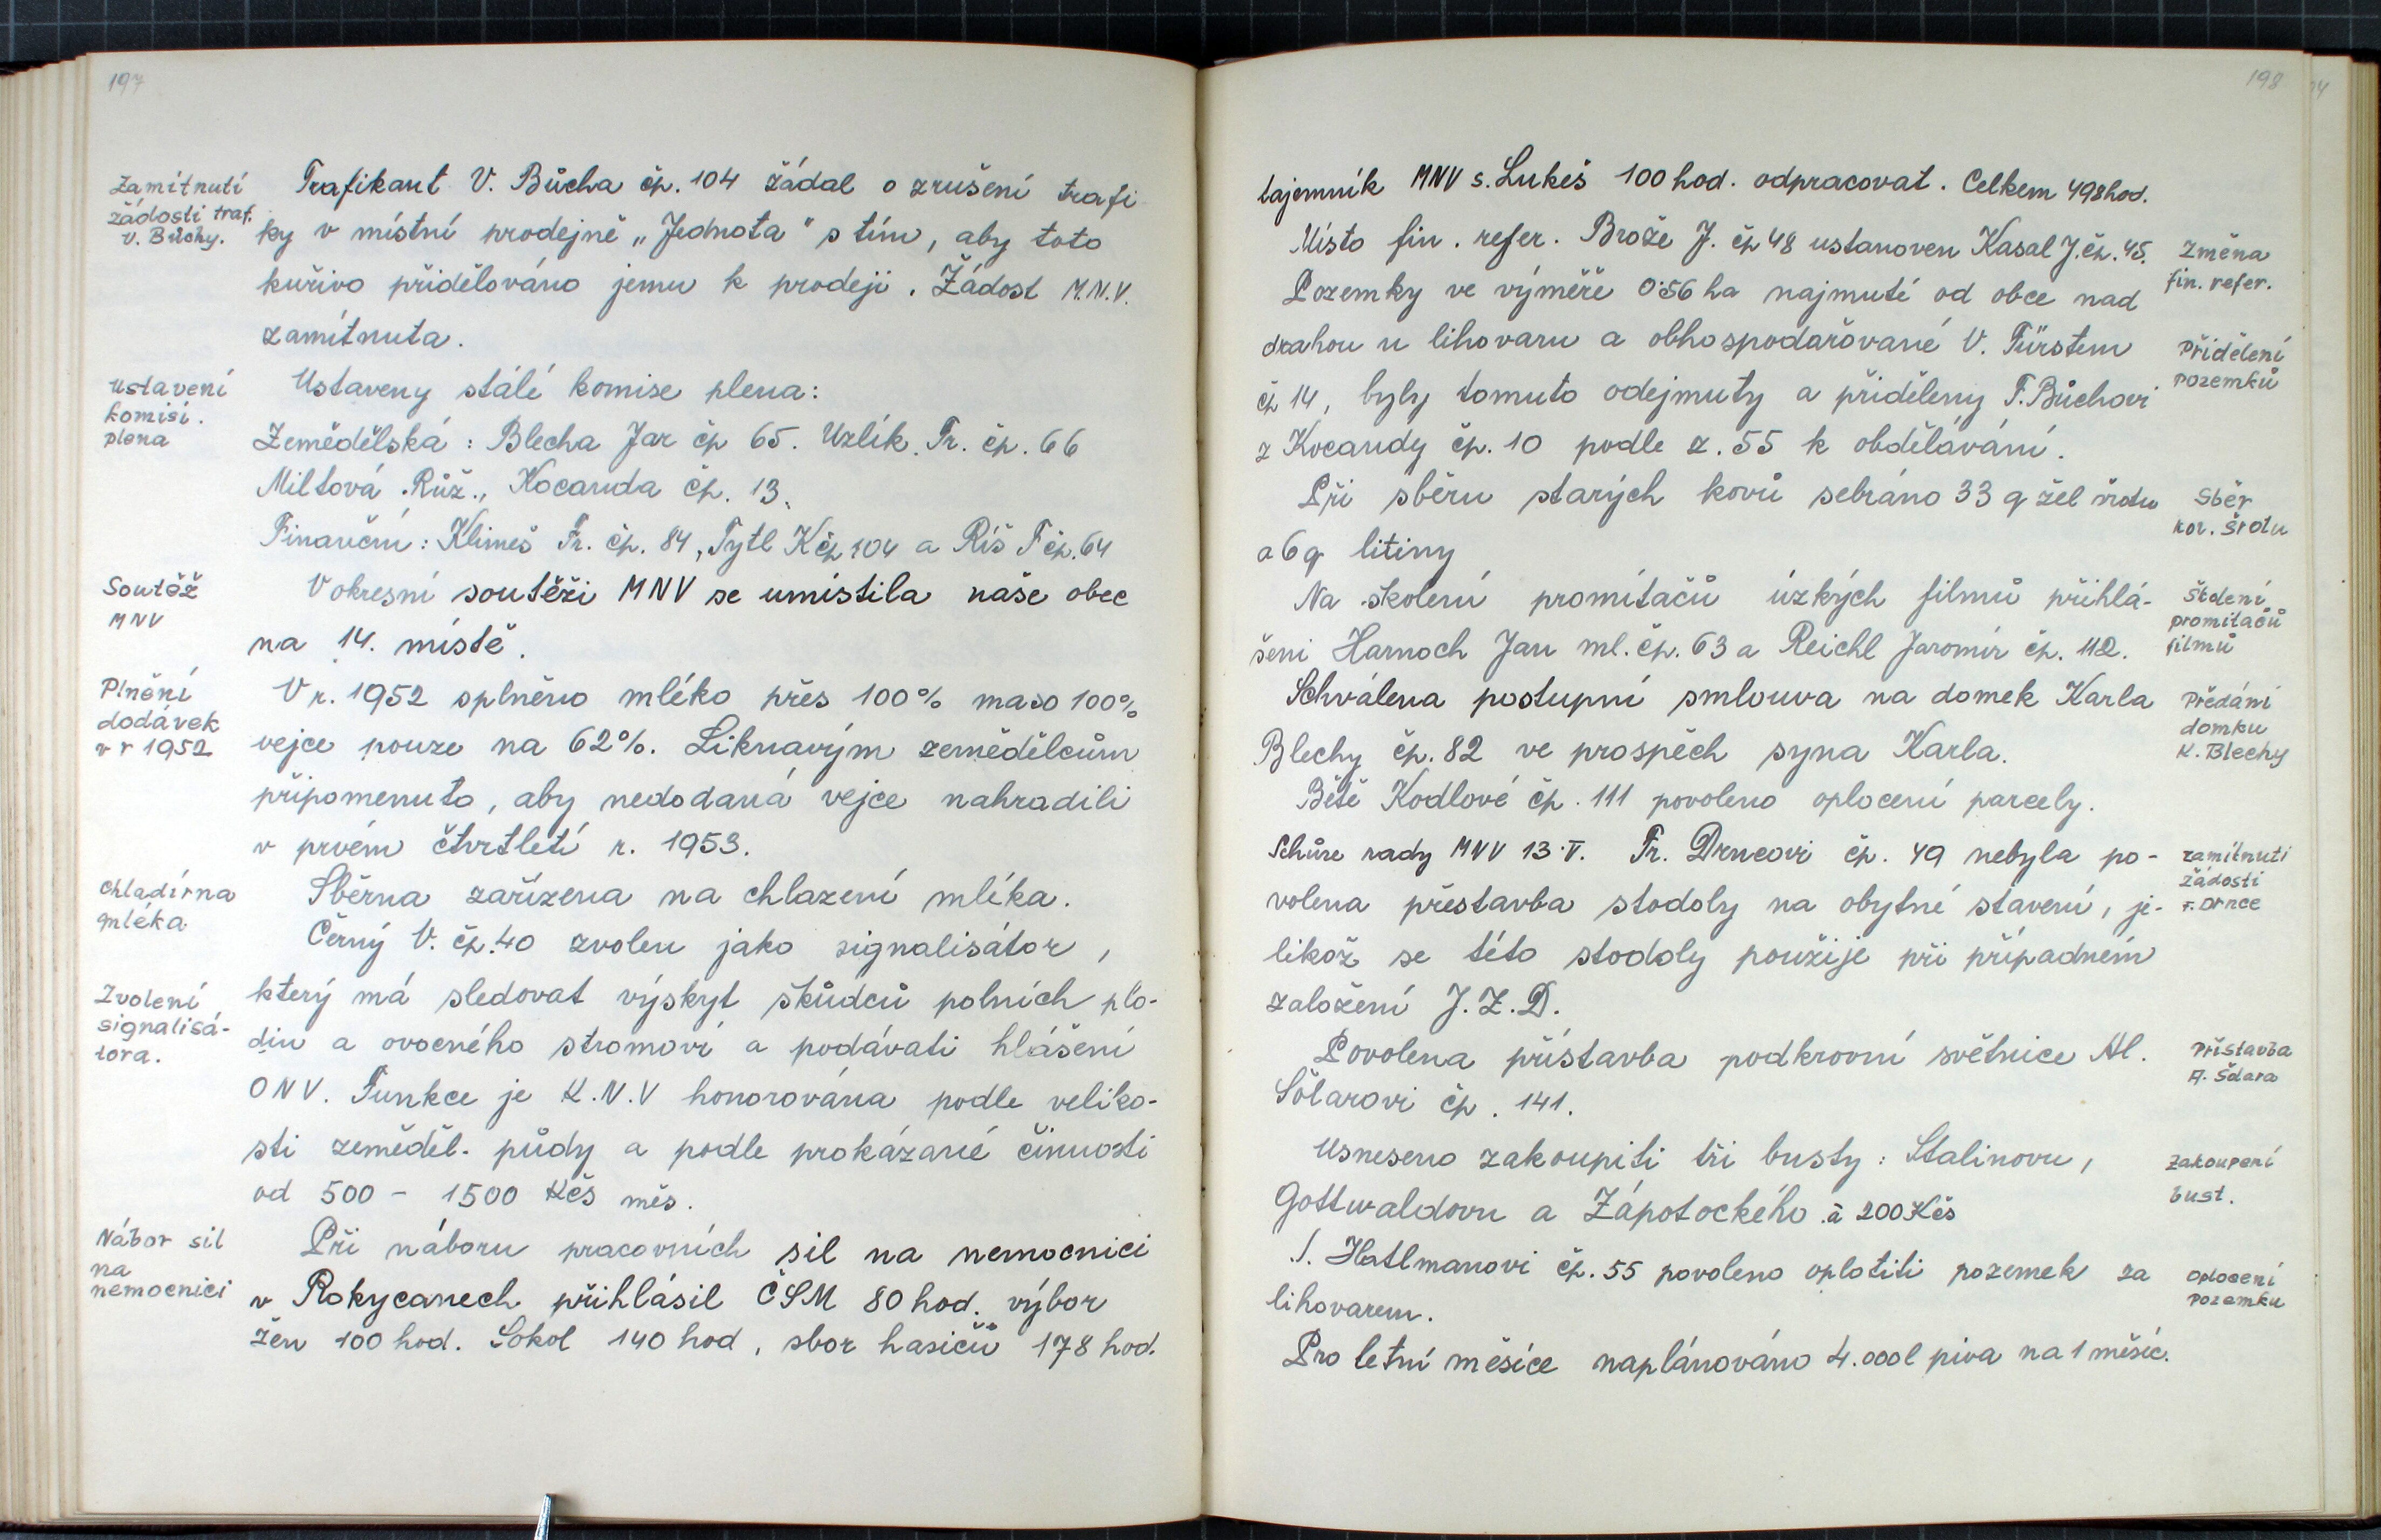 197
Zamítnutí
žádosti traf.
V. Bůchy.
Trafikant V. Bůcha čp. 104 žádal o zrušení trafi
ky v místní prodejně „Jednota" s tím, aby toto
kuřivo přidělováno jemu k prodeji. Žádost M.N.V.
zamítnuta.
Ustavení
komisí.
plena
Ustaveny stálé komise plena:
Zemědělská: Blecha Jar čp 65. Uzlík. Fr. čp. 66
Miltová Růž., Kocanda čp. 13.
Finanční: Klimeš Fr. čp. 84, Tytl K čp 104 a Říš F čp. 64
Soutěž
MNV
V okresní soutěži MNV se umístila naše obec
na 14. místě.
Plnění
dodávek
v r 1952
V r. 1952 splněno mléko přes 100% maso 100%
vejce pouze na 62%. Liknavým zemědělcům
připomenuto, aby nedodaná vejce nahradili
v prvém čtvrtletí r. 1953.
Chladírna
mléka
Sběrna zařízena na chlazení mléka.
Černý V. čp. 40 zvolen jako signalisátor,
Zvolení
signalisá-
tora.
který má sledovat výskyt škůdců polních plo-
din a ovocného stromoví a podávati hlášení
ONV. Funkce je K.N.V honorována podle veliko-
sti zeměděl. půdy a podle prokázané činnosti
od 500 - 1500 Kčs měs.
Nábor sil
na
nemocnici
Při náboru pracovních sil na nemocnici
v Rokycanech přihlásil ČSM 80 hod. výbor
žen 100 hod. Sokol 140 hod, sbor hasičů 178 hod.
198
tajemník MNV s. Lukeš 100 hod. odpracovat. Celkem 498 hod.
Místo fin. refer. Brože J. čp 48 ustanoven Kasal J. čp. 45.
Změna
fin. refer.
Pozemky ve výměře 0·56 ha najmuté od obce nad
drahou u lihovaru a obhospodařované V. Fürstem
Přidělení
pozemků
čp 14, byly tomuto odejmuty a přiděleny F. Bůchovi
z Kocandy čp. 10 podle z. 55 k obdělávání.
Při sběru starých kovů sebráno 33 q žel šrotu
Sběr
kov. šrotu
a 6 q litiny
Na školení promítačů úzkých filmů přihlá-
Školení
promítačů
filmů
šeni Harnoch Jan ml. čp. 63 a Reichl Jaromír čp. 112.
Schválena postupní smlouva na domek Karla
Předání
domku
K. Blechy
Blechy čp. 82 ve prospěch syna Karla.
Bětě Kodlové čp. 111 povoleno oplocení parcely.
Schůze rady MNV 13·V. Fr. Drncovi čp. 49 nebyla po-
zamítnutí
žádosti
F. Drnce
volena přestavba stodoly na obytné stavení, je-
likož se této stodoly použije při případném
založení J.Z.D.
Povolena přístavba podkrovní světnice Al.
Přístavba
A. Šdara
Šótarovi čp. 141.
Usneseno zakoupiti tři busty: Stalinovu,
Zakoupení
bust.
Gottwaldovu a Zápotockého á 200 Kčs
J. Hatlmanovi čp. 55 povoleno oplotiti pozemek za
Oplocení
pozemku
lihovarem.
Pro letní měsíce naplánováno 4.000 l piva na 1 měsíc.